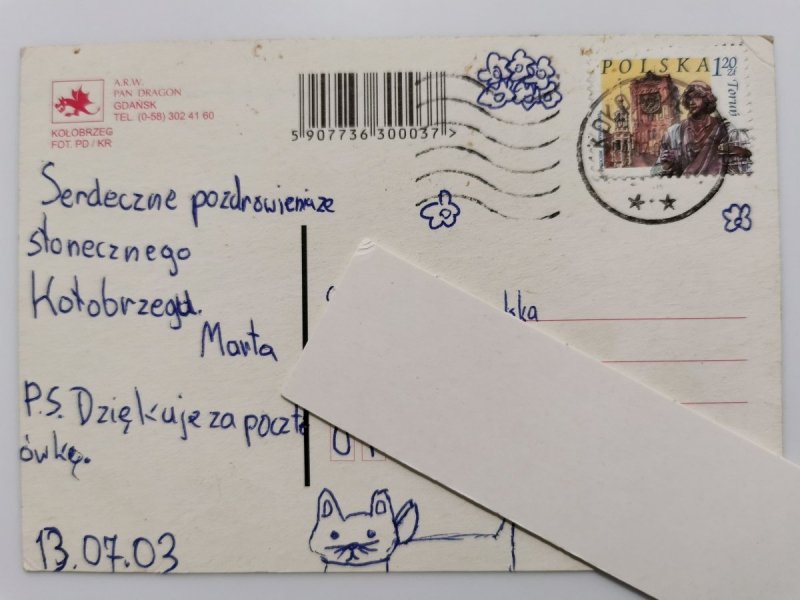 A.R.W.
PAN DRAGON
GDAŃSK
TEL. (0-58) 302 41 60
KOŁOBRZEG
FOT. PD / KR
5 907736 300037 >
POLSKA 1 20 zł
Toruń
Serdeczne pozdrowienia ze
słonecznego
Kołobrzegu.
Marta
P.S. Dziękuje za poczt
ówkę.
13.07.03